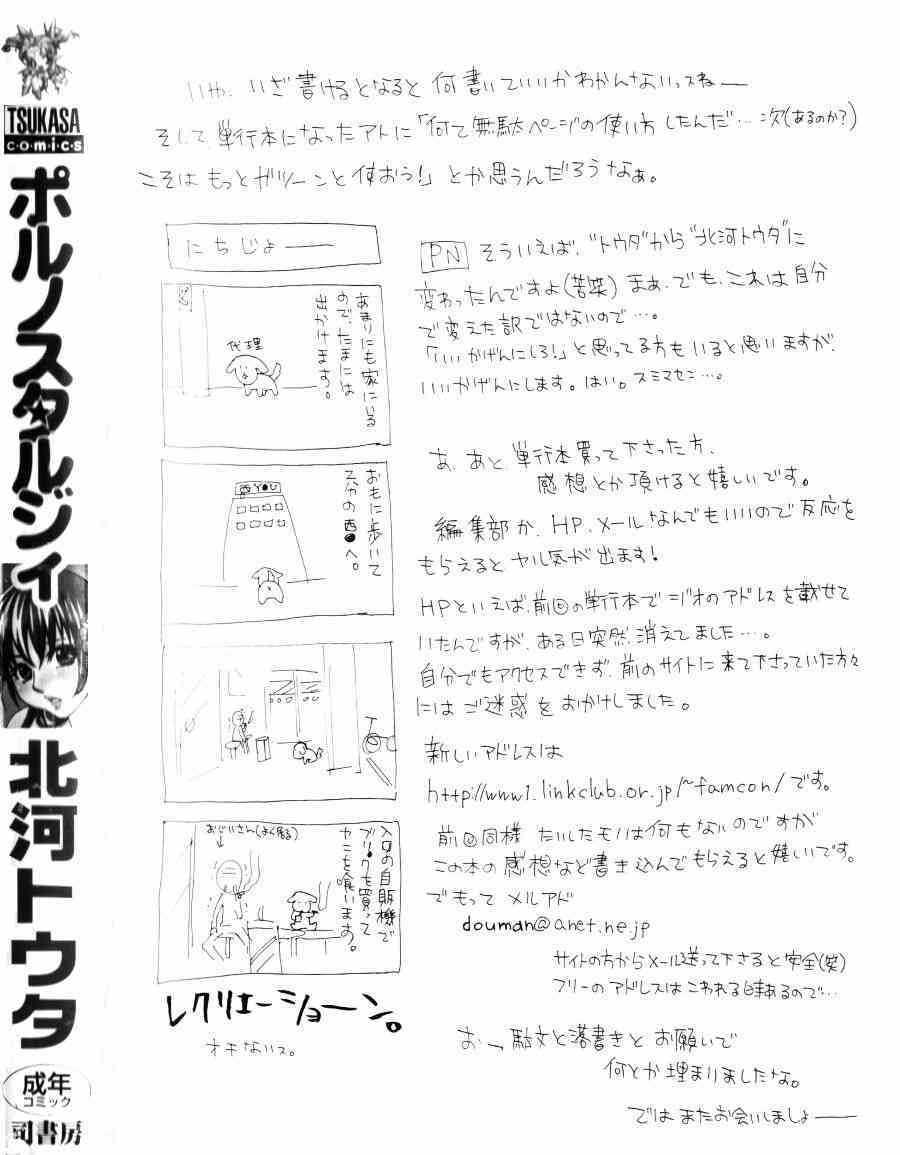 TSUKASA
comics
ポルノスタルジィ
北河トウタ
成年
コミック
司書房
いや、いざ書けるとなると何書いていいかわかんないっスねー
そして単行本になったアトに「何て無駄ページの使い方したんだ…次(あるのか?)
こそはもっとガツーンと使おう!」とか思うんだろうなぁ。
にちじょー
あまりにも家にいる
ので、たまには
出かけます。
代理
おもに歩いて
そのへの西●へ。
西YOU
入口の自販機で
ブリ●クを買って
ヤニを喰います。
おじいさん(よく居る)
レクリエーショーン。
オチないス。
PN そういえば、"トウタ"から"北河トウタ"に
変わったんですよ(苦笑)まぁ、でも、これは自分
で変えた訳ではないので…。
「いいかげんにしろ!」と思ってる方もいると思いますが、
いいかげんにします。はい。スミマセン…。
あ、あと、単行本買って下さった方、
感想とか頂けると嬉しいです。
編集部か、HP、メールなんでもいいので反応を
もらえるとヤル気が出ます!
HPといえば、前回の単行本でジオのアドレスを載せて
いたんですが、ある日突然、消えてました…。
自分でもアクセスできず、前のサイトに来て下さっていた方々
にはご迷惑をおかけしました。
新しいアドレスは
http://www1.linkclub.or.jp/~famcon/です。
前回同様たいしたモノは何もないのですが
この本の感想など書き込んでもらえると嬉しいです。
でもってメルアド
douman@anet.ne.jp
サイトの方からメール送って下さると安全(笑)
フリーのアドレスはこわれる時あるので…
おー、駄文と落書きとお願いで
何とか埋まりましたな。
ではまたお会いしましょー